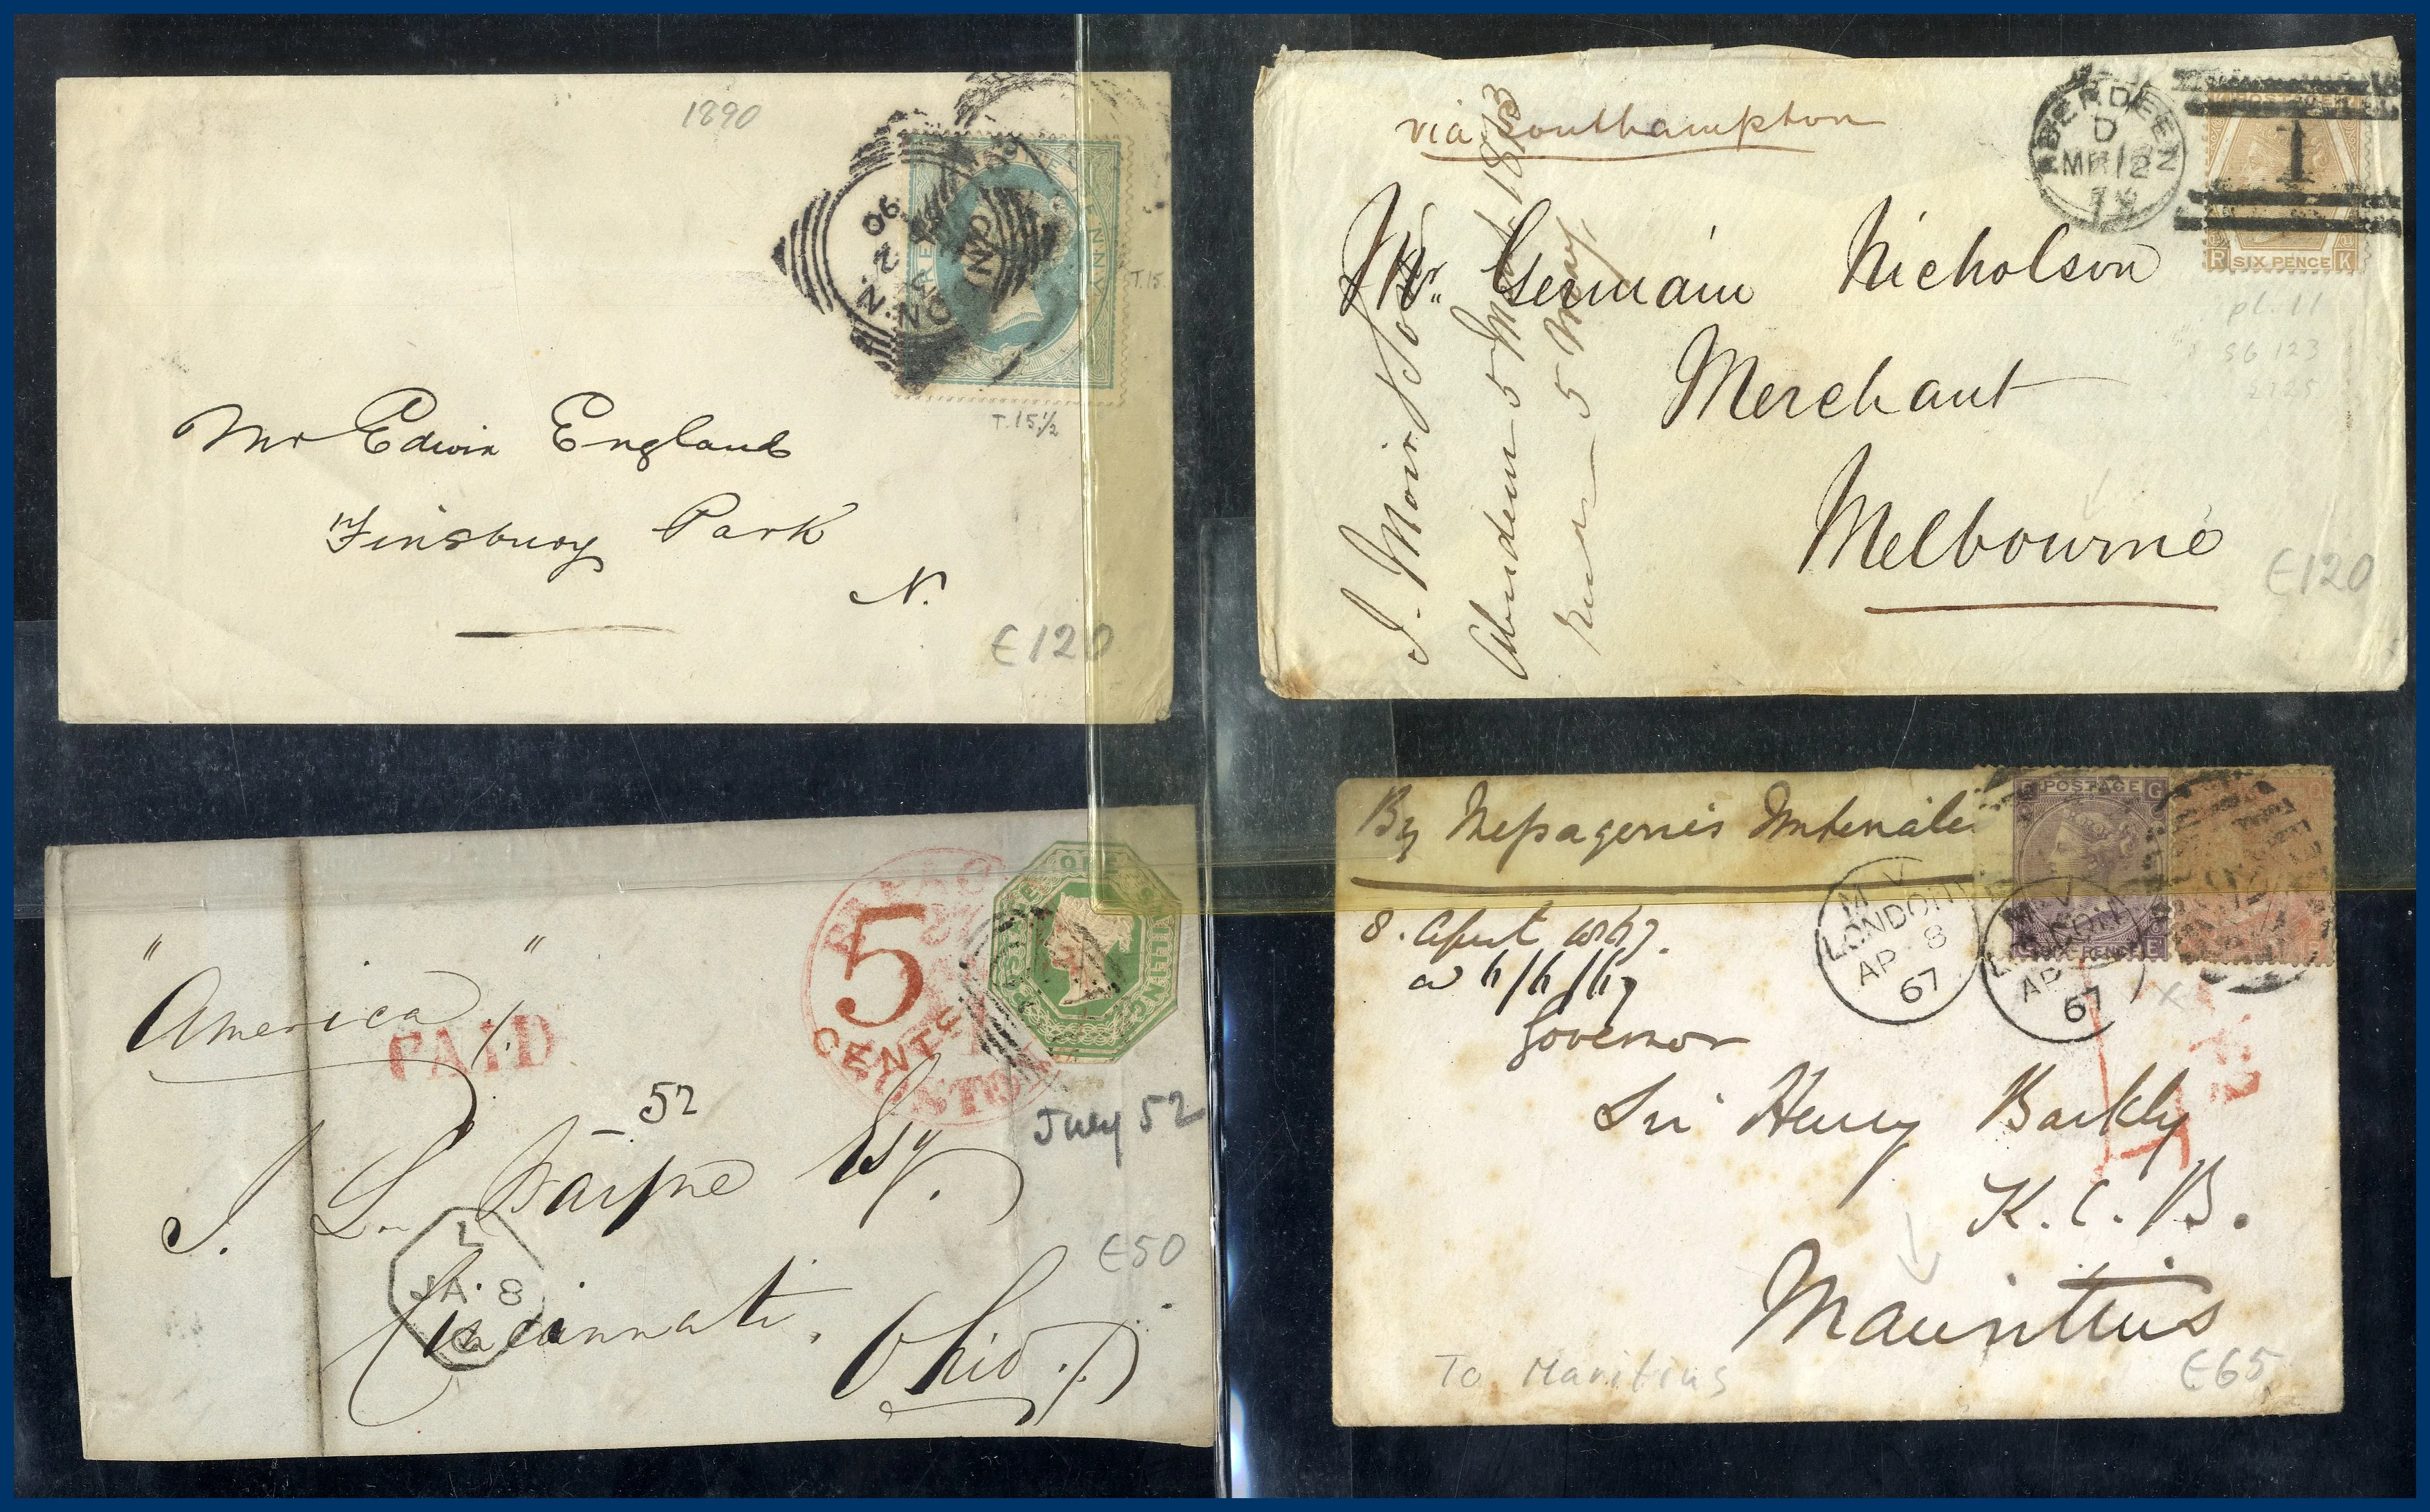 1890
90
T.15.
T.15½
Mr Edwin England
Finsbury Park
N.
€120
via Southampton
ABERDEEN
D
MR 12
1
POSTAGE
R SIX PENCE K
pl. 11
SG 123
Mr. Germain Nicholson
Merchant
Melbourne
€120
J. Moir & Son
Aberdeen 5 1873
5 May
"America"
PAID
5
CENTS
ONE SHILLING
52
July 52
J. L. Esq.
L
JA. 8
Cincinnati,
Ohio
€50
By Messageries
8. April 1867.
Governor
Sir Henry Barkly
K.C.B.
Mauritius
To Maritius
€65
POSTAGE G
E
M.V
LONDON
AP 8
67
M.V
LONDON
AP
67